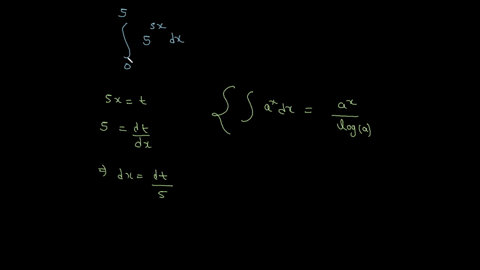 ∫₀⁵ 5^{5x} dx
5x = t
5 = dt/dx
⇒ dx = dt/5
{ ∫ a^x dx = a^x / log(a)